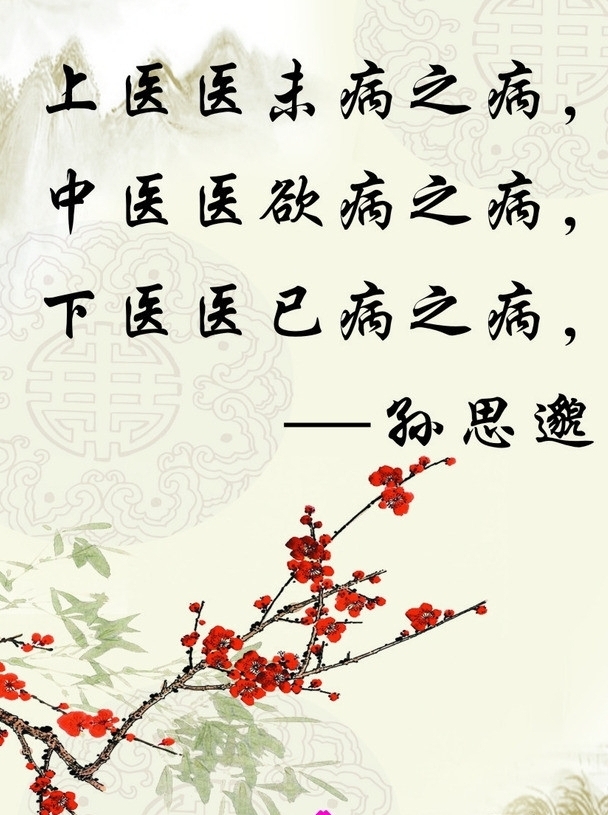 上医医未病之病，
中医医欲病之病，
下医医已病之病，
——孙思邈